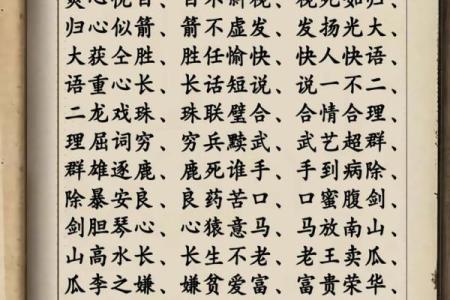 归心似箭、箭不虚发、发扬光大、
大获全胜、胜任愉快、快人快语、
语重心长、长话短说、说一不二、
二龙戏珠、珠联璧合、合情合理、
理屈词穷、穷兵黩武、武艺超群、
群雄逐鹿、鹿死谁手、手到病除、
除暴安良、良药苦口、口蜜腹剑、
剑胆琴心、心猿意马、马放南山、
山高水长、长生不老、老王卖瓜、
瓜李之嫌、嫌贫爱富、富贵荣华、